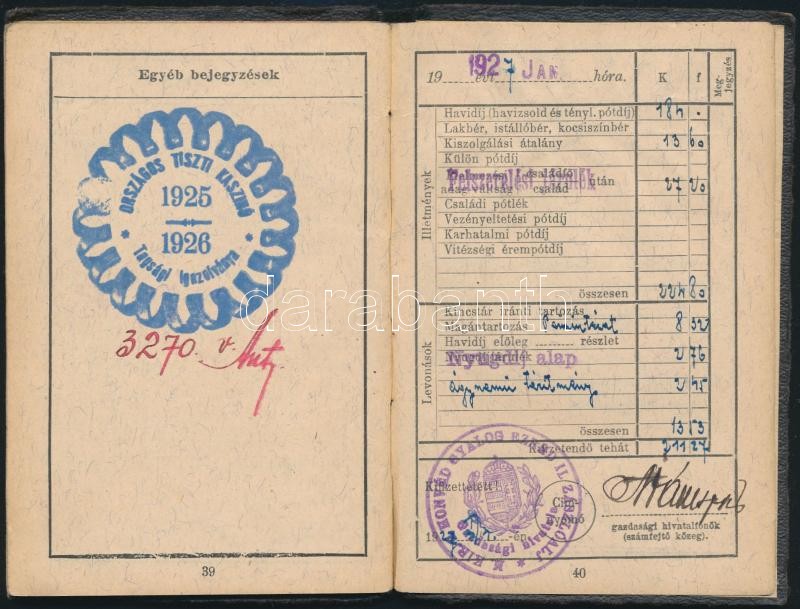 Egyéb bejegyzések
ORSZÁGOS TISZTI KASZINÓ
1925
1926
* Tagsági igazolványa *
3270
39
1927 évi JAN. hóra.
K f Megjegyzés
Illetmények
Havidíj (havizsold és tényl. pótdíj) 184 .
Lakbér, istállóbér, kocsiszínbér
Kiszolgálási átalány 13 60
Külön pótdíj
családfő
család után 27 20
Családi pótlék
Vezényeltetési pótdíj
Karhatalmi pótdíj
Vitézségi érempótdíj
összesen 224 80
Levonások
Kincstár iránti tartozás
Magántartozás 8 32
Havidíj előleg részlet
Nyugdíj alap 2 76
ágynemű térítmény 2 45
összesen 13 53
Kifizetendő tehát 211 27
M. KIR. HONVÉD GYALOG EZRED II. ZÁSZLÓALJ
Gazdasági hivatala
Kifizettetett
-én.
gazdasági hivatalfőnök
(számfejtő közeg).
40
darabanth